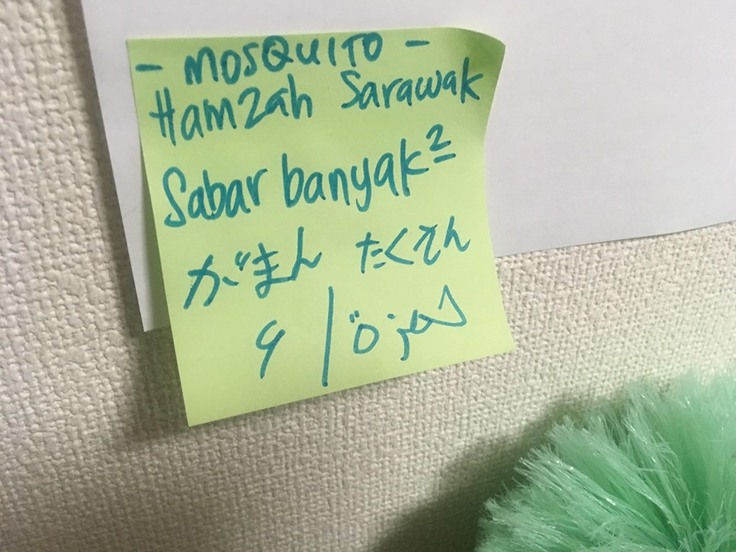 - MOSQUITO -
Hamzah Sarawak
Sabar banyak²
がまん たくさん